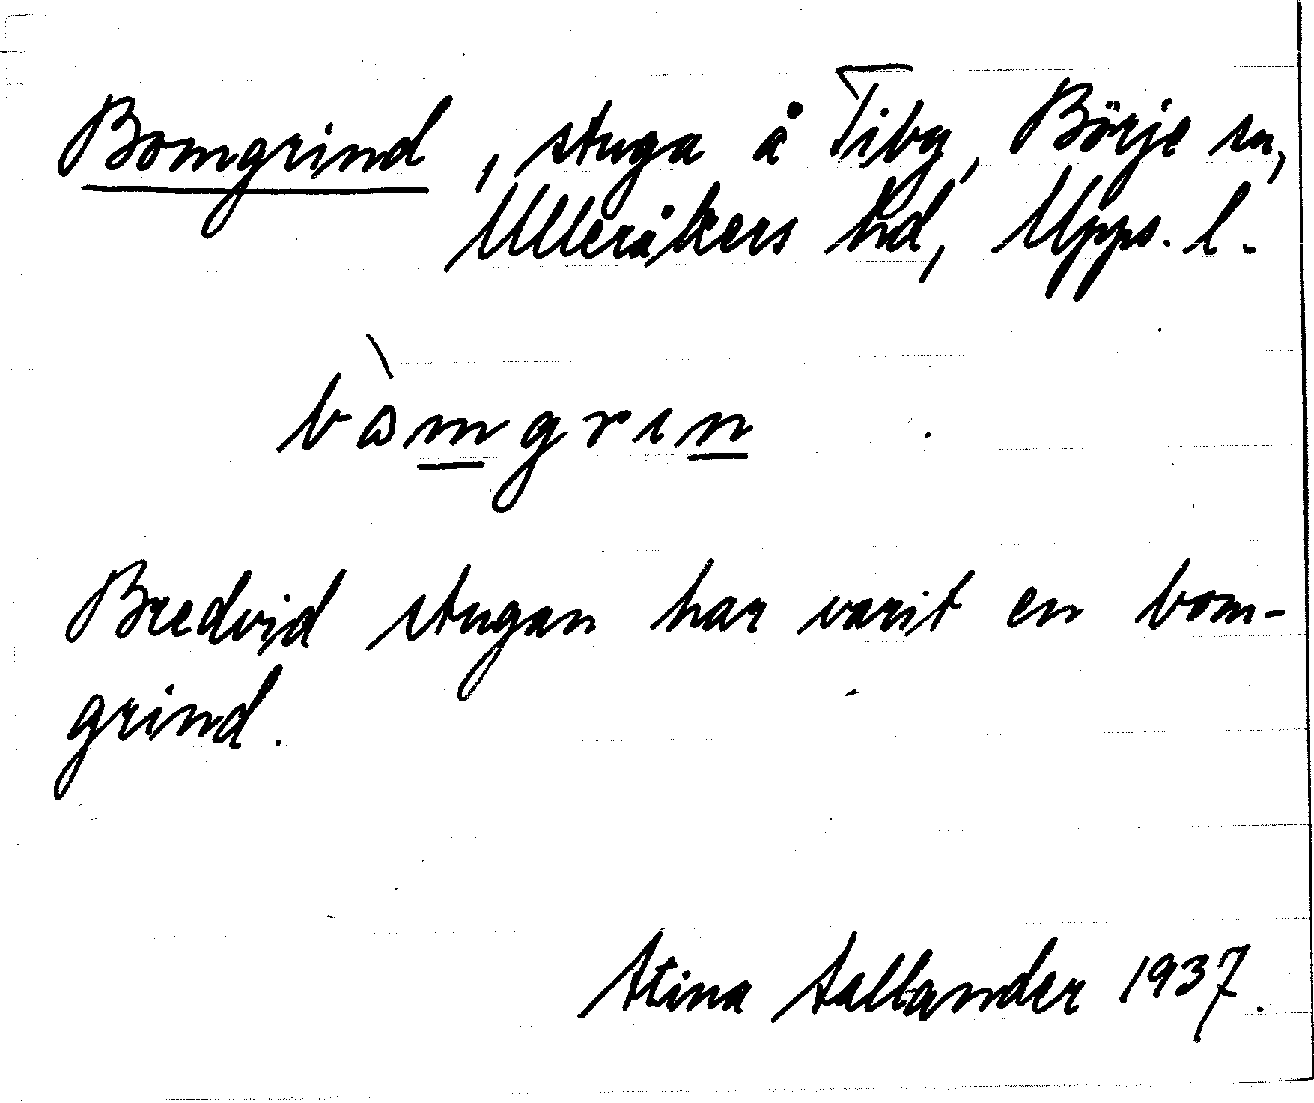 Bomgrind, stuga å Tiby, Börje sn,
Ulleråkers hd, Upps. l.
bòmgrın
Bredvid stugan har varit en bom-
grind.
Stina Sallander 1937.